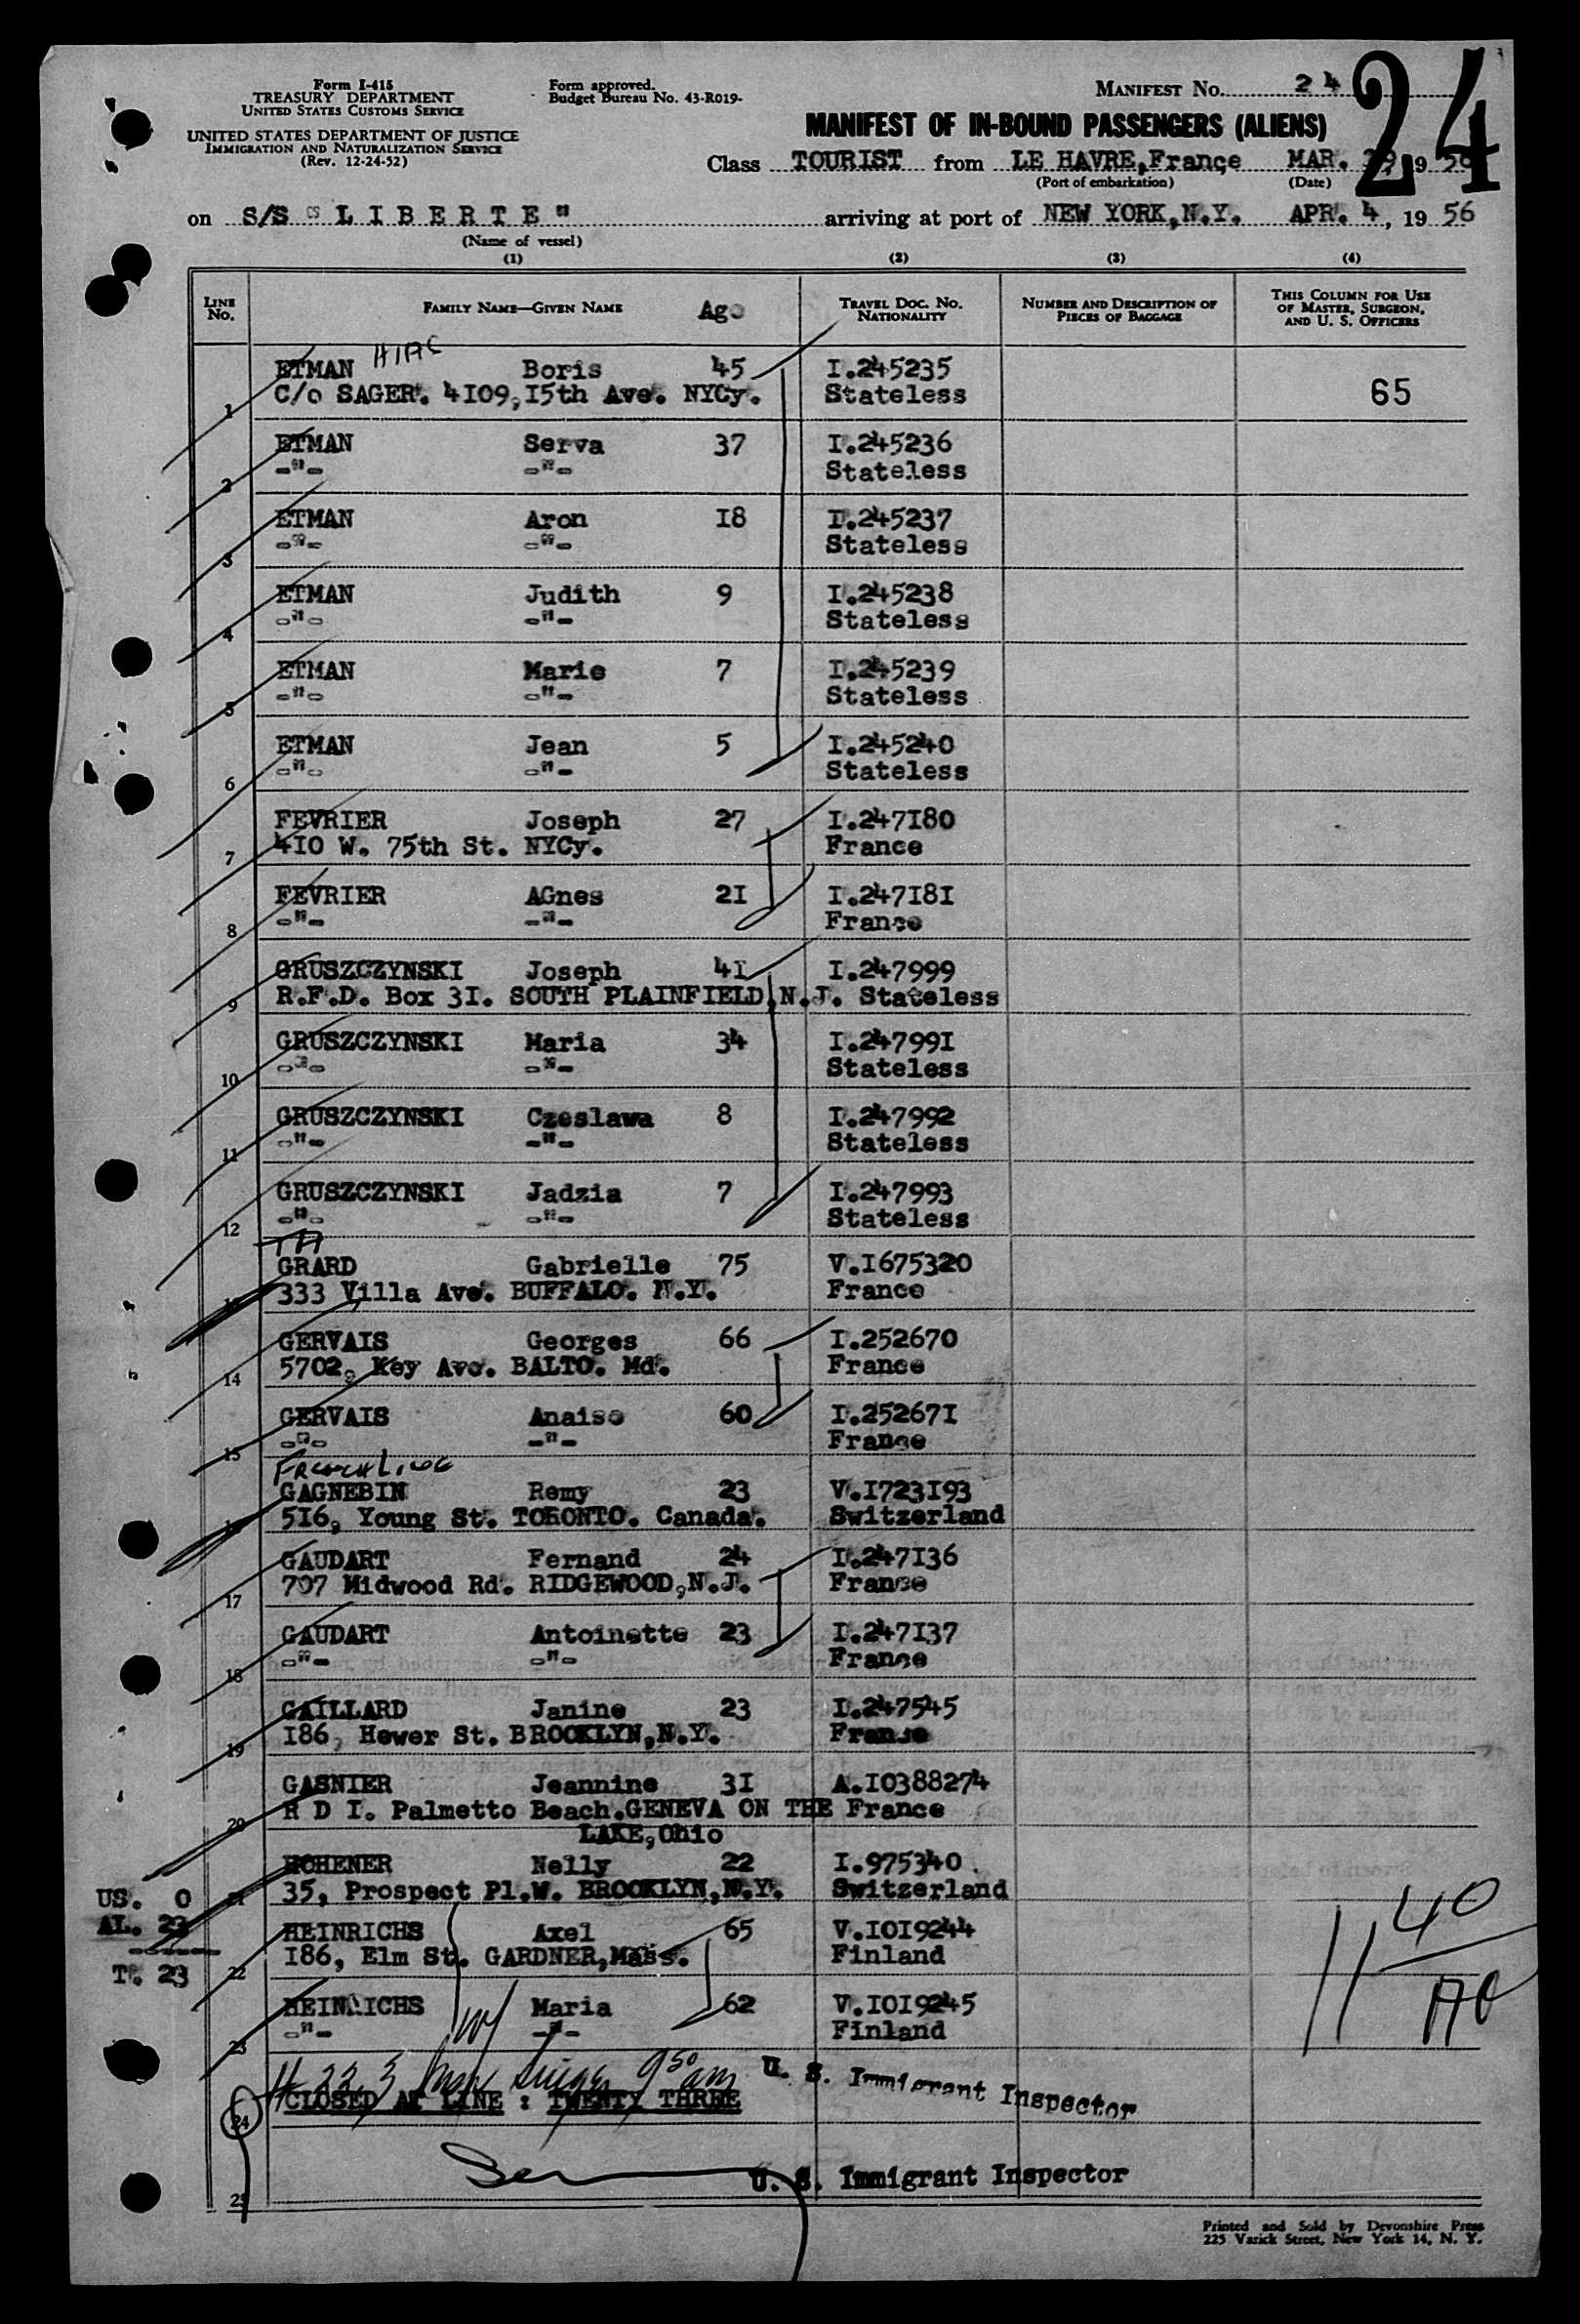 Form I-415
TREASURY DEPARTMENT
UNITED STATES CUSTOMS SERVICE
UNITED STATES DEPARTMENT OF JUSTICE
IMMIGRATION AND NATURALIZATION SERVICE
(Rev. 12-24-52)
Form approved.
Budget Bureau No. 43-R019-
MANIFEST No. 24
24
MANIFEST OF IN-BOUND PASSENGERS (ALIENS)
Class TOURIST from LE HAVRE,France MAR. 19 56
(Port of embarkation) (Date)
on S/S "LIBERTE" arriving at port of NEW YORK,N.Y. APR. 4, 19 56
(Name of vessel)
(1) (2) (3) (4)
LINE No. FAMILY NAME—GIVEN NAME Age TRAVEL DOC. NO. NATIONALITY NUMBER AND DESCRIPTION OF PIECES OF BAGGAGE THIS COLUMN FOR USE OF MASTER, SURGEON, AND U. S. OFFICERS
HIAS
ETMAN Boris 45 I.245235
1 C/o SAGER. 4I09,I5th Ave. NYCy. Stateless 65
ETMAN Serva 37 I.245236
2 -"- -"- Stateless
ETMAN Aron I8 I.245237
3 -"- -"- Stateless
ETMAN Judith 9 I.245238
4 -"- -"- Stateless
ETMAN Marie 7 I.245239
5 -"- -"- Stateless
ETMAN Jean 5 I.245240
6 -"- -"- Stateless
FEVRIER Joseph 27 I.247I80
7 4I0 W. 75th St. NYCy. France
FEVRIER AGnes 2I I.247I8I
8 -"- -"- France
GRUSZCZYNSKI Joseph 4I I.247999
9 R.F.D. Box 3I. SOUTH PLAINFIELD,N.J. Stateless
GRUSZCZYNSKI Maria 34 I.24799I
10 -"- -"- Stateless
GRUSZCZYNSKI Czeslawa 8 I.247992
11 -"- -"- Stateless
GRUSZCZYNSKI Jadzia 7 I.247993
12 -"- -"- Stateless
GRARD Gabrielle 75 V.I675320
13 333 Villa Ave. BUFFALO. N.Y. France
GERVAIS Georges 66 I.252670
14 5702, Key Ave. BALTO. Md. France
GERVAIS Anaise 60 I.25267I
15 -"- -"- France
French Line
GAGNEBIN Remy 23 V.I723I93
16 5I6, Young St. TORONTO. Canada. Switzerland
GAUDART Fernand 24 I.247I36
17 707 Midwood Rd. RIDGEWOOD,N.J. France
GAUDART Antoinette 23 I.247I37
18 -"- -"- France
GAILLARD Janine 23 I.247545
19 I86, Hewer St. BROOKLYN,N.Y. France
GASNIER Jeannine 3I A.I0388274
20 R D I. Palmetto Beach.GENEVA ON THE France
LAKE,Ohio
HOHENER Nelly 22 I.975340.
21 35, Prospect Pl.W. BROOKLYN,N.Y. Switzerland
US. 0
AL. 23
T. 23
HEINRICHS Axel 65 V.I0I9244
22 I86, Elm St. GARDNER,Mass. Finland
HEINRICHS Maria 62 V.I0I9245
23 -"- -"- Finland
11 40
9 50 am
U. S. Immigrant Inspector
24 CLOSED AT LINE : TWENTY THREE
U. S. Immigrant Inspector
25
Printed and Sold by Devonshire Press
225 Varick Street, New York 14, N. Y.